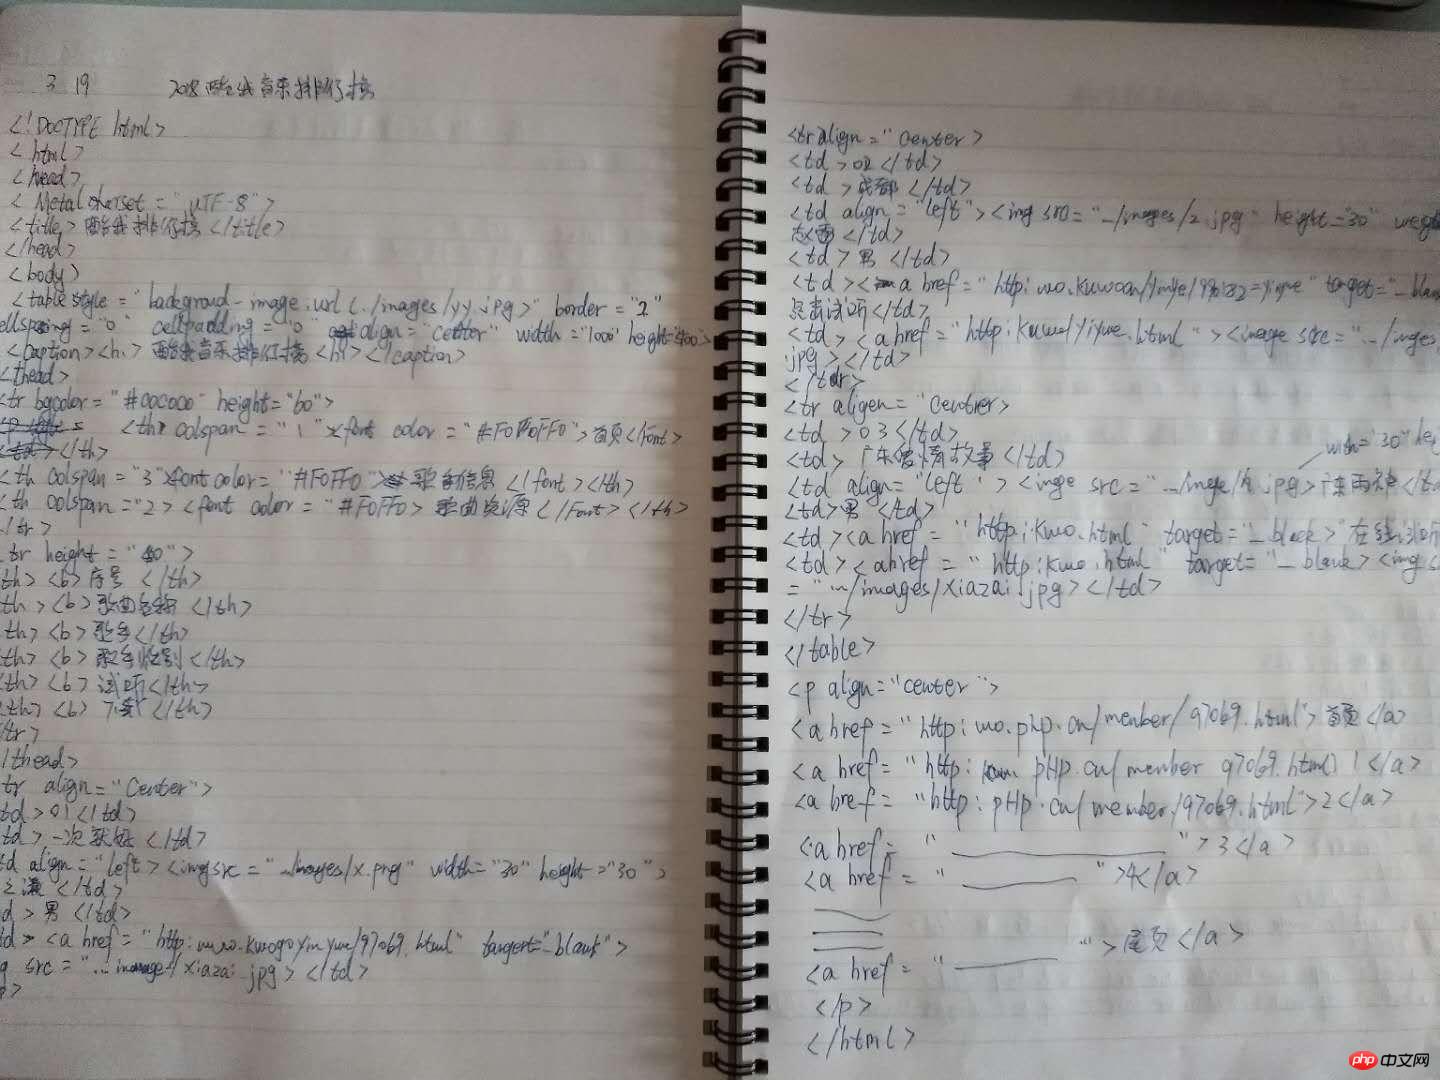 3 19 2018 酷我音乐排行榜
<!DOCTYPE html>
<html>
<head>
< Meta charset = "UTF-8">
<title> 酷我排行榜 </title>
</head>
<body>
<table style = "backgroud-image.url (../images/yy.jpg>" border = "1"
ellspacing = "0" cellpadding = "0" align = "center" width = "1000" height="400">
<caption><h1> 酷我音乐排行榜 <h1></caption>
<thead>
<tr bgcolor = "#cococo" height="60">
<th colspan = "1" ><font color = "#F0FF0" >首页</font>
</th>
<th colspan = "3"><font color = "#F0FF0"> 歌手信息 </font></th>
<th colspan = "2> <font color = "#F0FF0> 歌曲资源 </font> </th>
/tr>
tr height = "40">
th> <b> 序号 </th>
th> <b> 歌曲名称 </th>
th> <b> 歌手 </th>
th> <b> 歌手性别 </th>
th> <b> 试听 </th>
th> <b> 下载 </th>
/tr>
/thead>
tr align = "Center">
td > 01 </td>
td > 一次就好 </td>
td align = "left > <img src = "../images/x.png" width = "30" height = "30" >
</td>
d > 男 </td>
td> <a href = " http: 97069.html" target="_blank">
g src = ".. image/xiazai.jpg > </td>
<tr align = "center >
<td > 02 </td>
<td > 成都 </td>
<td align = "left" > <img src = "../images/2.jpg" height = "30"
赵雷 </td>
<td > 男 </td>
<td > < a href = " http: target="_blan
点击试听 </td>
<td > <a href = "http: kuwo/yiyue.html " > <image src = "../imges/
jpg > </td>
</tr>
<tr aligen = "center>
<td > 03 </td>
<td> 广东爱情故事 </td>
with="30" hei
<td align = "left " > <inge src = "../inge/h.jpg > 广东雨神 </td
<td > 男 </td>
<td > <a href = " http: kwo.html" target = "_black > 在线试听
<td > <ahref = " http: kwo.html " target = "_blank > <img s
= "../images/xiazai.jpg > </td>
</tr>
</table>
<p align = "center ">
<a href = "http: wo.php.cn/menber/97069.html"> 首页 </a>
<a href = "http: pHp.cn/member 97069.html) 1 </a>
<a href = "http: pHp.cn/member/97069.html">2</a>
<a href = " "> 3 </a>
<a href = " ">4</a>
"> 尾页 </a>
<a href = "
</p>
</html>
php 中文网